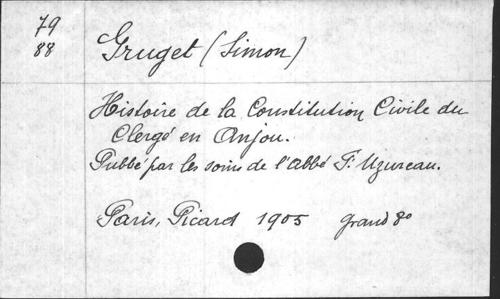 79
88
Gruget (Simon)
Histoire de la Constitution Civile du
Clergé en Anjou.
Publié par les soins de l'abbé F. Uzureau.
Paris, Picard 1905 grand 8o